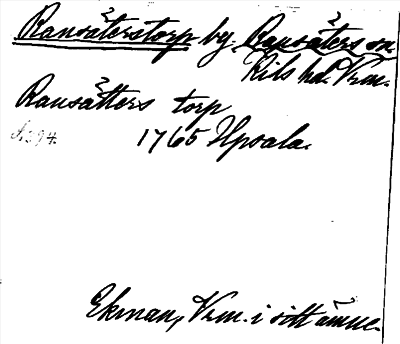 Ransäterstorp by Ransäters sn.
Kils hd. Vrm.
Ransätters torp
s. 394. 1765 Upsala.
Ekman, Vrm. i sitt ämne.